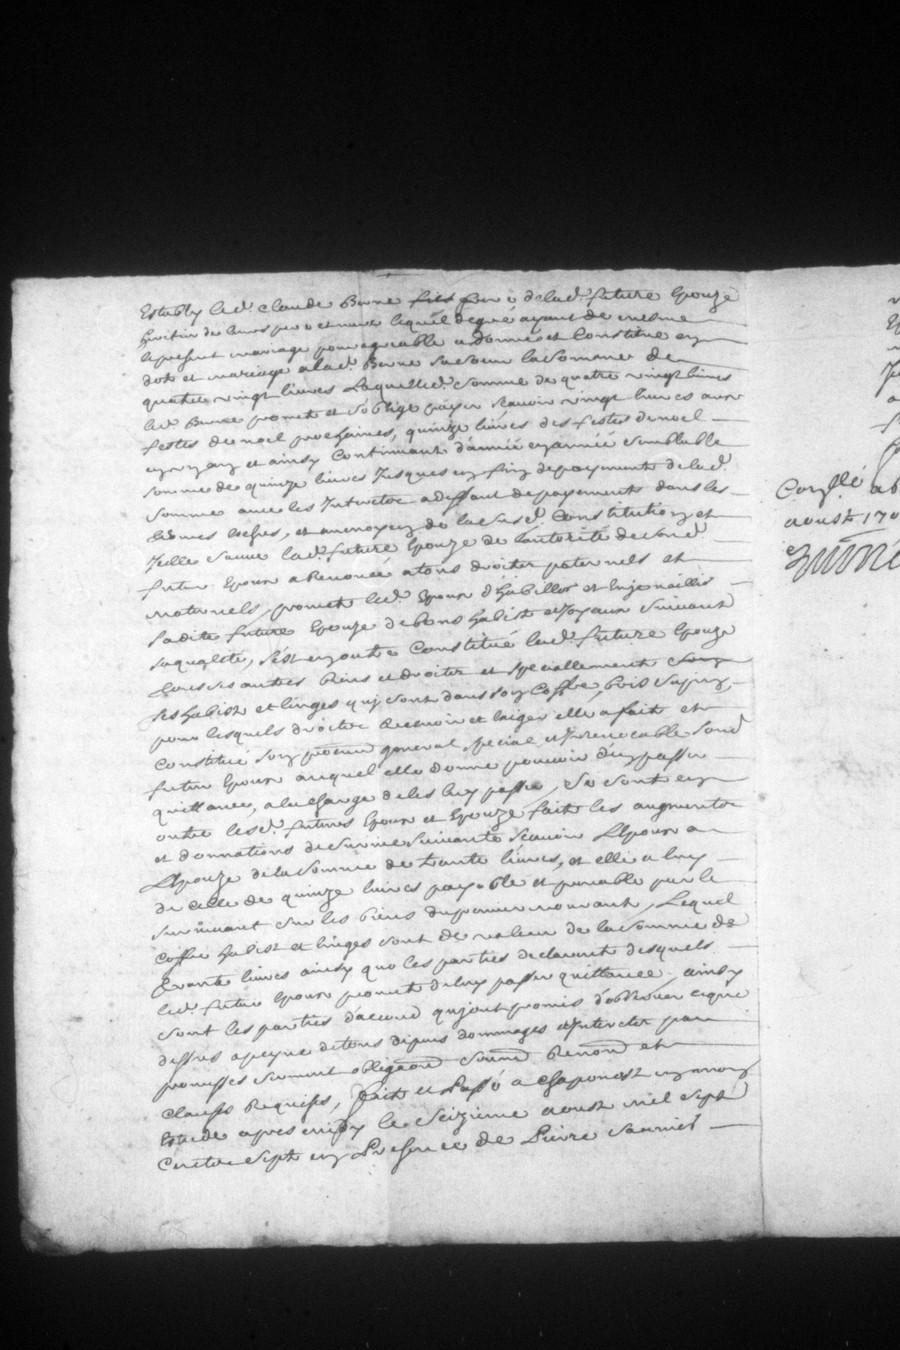 Estably led. claude Borne frere de lad. future Epouze
heritier de leurs pere et mere lequel degré ayant de mesme
le present mariage pour agreable a donné et Constitué en
dot et mariage a lad. Borne sa soeur la Somme de
quatre vingt livres Laquelle d. somme de quatre vingt livres
led. Borne promet et s'oblige payer scavoir vingt livres aux
festes de noel prochaines, quinze livres des festes de noel
en un an et ainsy Continuant d'année en année semblable
somme de quinze livres Jusques en fin de payement de lad.
Somme avec les Interets a deffaut de payement dans les
termes eschus, et au moyen de la susd. Constitution et
Icelle sauve lad. future Epouze de l'autorité de sond.
futur Epoux a Renoncé a tous droits paternels et
maternels, promet led. Epoux d'habiller et Enjouaillir
sadite future Epouze de bons habits et Joyaux suivant
sa qualité, s'est en outre Constitué lad. future Epouze
tous ses autres biens et droits et speciallement
ses habits et linges qui sont dans son Coffre, bois sapin,
pour lesquels droits Recevoir et Exiger elle a fait et
Constitué son procureur general special et Irrevocable sond.
futur Epoux auquel elle donne pouvoir d'en passer
quittance, a la charge de les luy passer, se sont en
outre lesd. futurs Epoux et Epouze fait les augments
et donnations de survie suivants scavoir L'Epoux a
L'Epouze de la somme de trante livres, et elle a luy
de celle de quinze livres payable et prenable par le
survivant sur les biens du premier mourant, Lequel
coffre habits et linges sont de valeur de la somme de
trante livres ainsy que les parties declarent desquels
led. futur Epoux promet de luy passer quittance, ainsy
sont les parties d'accord qui ont promis d'observer ce que
dessus a peyne de tous depens dommages et Interets par
promesses serment obligaon soumon Renonon et
clauses Requises, fait et Passé a Chaponost en mon
Estude apres midy le seizieme aoust mil sept
Cents sept en Presence de Pierre
Conllé a
aoust 170